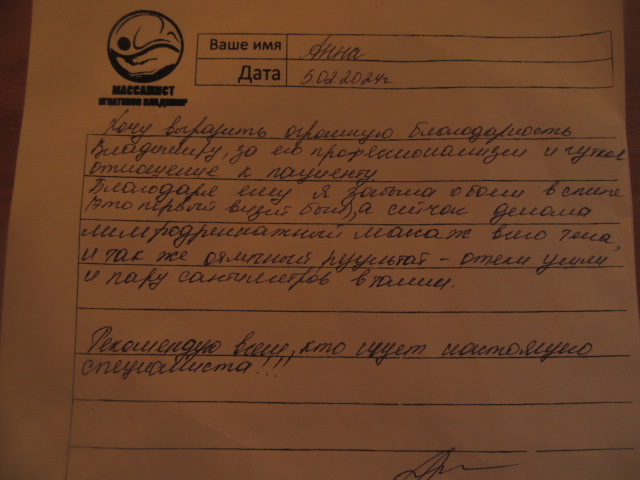 Ваше имя Анна
Дата 5.02.2024г
МАССАЖИСТ
ИГНАТИКОВ ВЛАДИМИР
Хочу выразить огромную благодарность
Владимиру, за его профессионализм и чуткое
отношение к пациенту
Благодаря ему я забыла о боли в спине
Это первый визит был, а сейчас делала
лимфодренажный масаж всего тела,
и так же отличный результат - отеки ушли
и пару сантиметров в талии.
Рекомендую всем, кто ищет настоящего
специалиста!!!